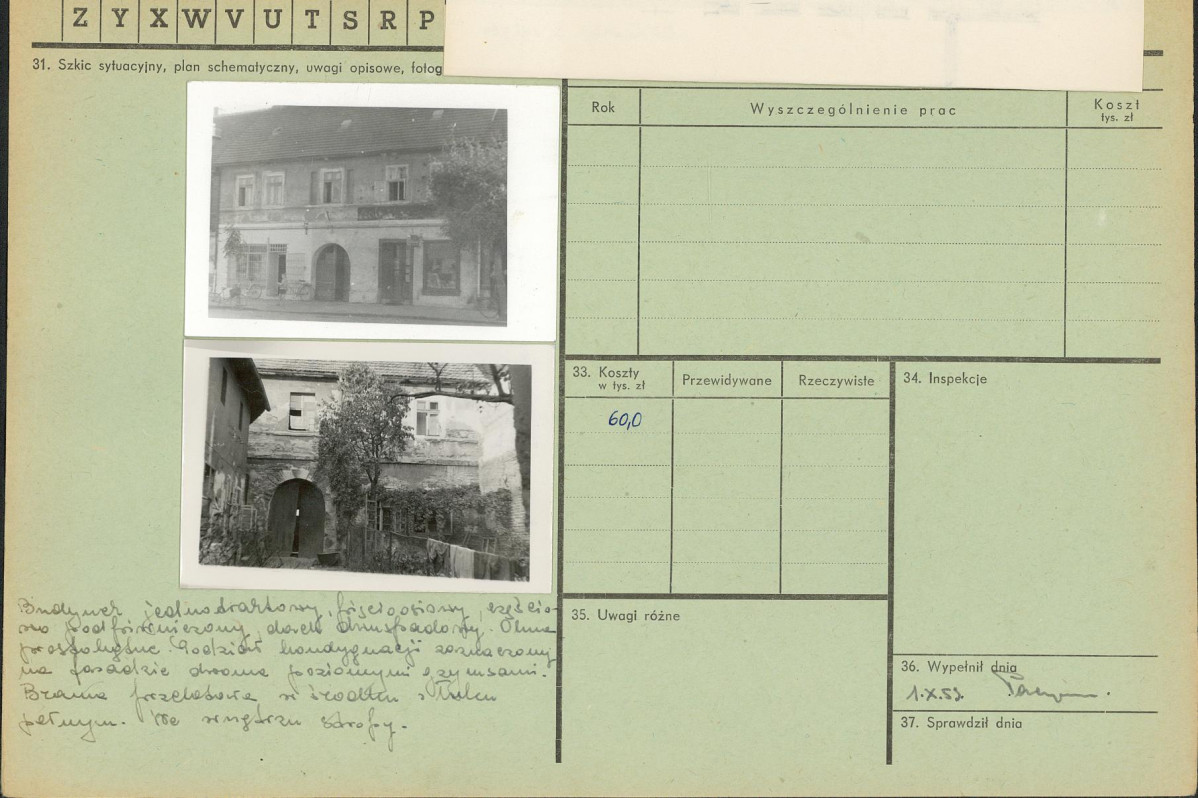 Z Y X W V U T S R P
31. Szkic sytuacyjny, plan schematyczny, uwagi opisowe, fotog
Rok
Wyszczególnienie prac
Koszt
tys. zł
33. Koszty
w tys. zł
Przewidywane
Rzeczywiste
34. Inspekcje
60,0
Budynek jednotraktowy, pięcioosiowy, częścio-
wo podpiwniczony, dach dwuspadowy. Okna
prostokątne. Podział kondygnacji zaznaczony
na fasadzie dwoma poziomymi gzymsami.
Brama przelotowa w środku o łuku
pełnym. We wnętrzu stropy.
35. Uwagi różne
36. Wypełnił dnia
1.X.59
37. Sprawdził dnia